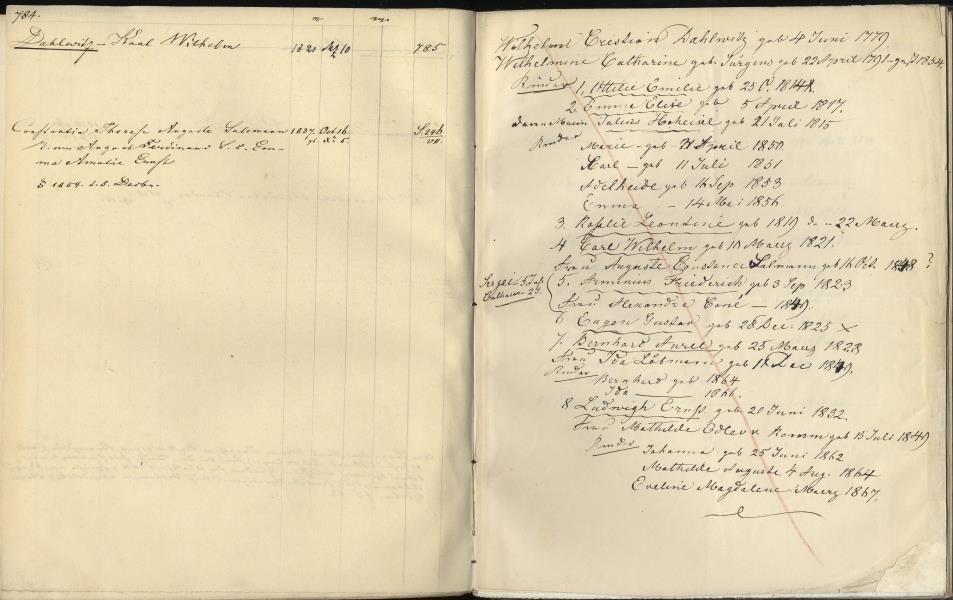 784.
Dahlwitz - Karl Wilhelm 1821 Mz 10 785
Constantia Therese Auguste Salemann 1837. Oct 16.
T. v. Aug. Ferdinand S. u. Em-
ma Amalie Ernst
Wilhelm Cristion Dahlwitz geb 4 Juni 1779
Wilhelmine Catharine geb. Jürgens geb 22 April 1791 - gest 1854.
Kinder 1, Ottilie Emilie geb 25 1814.
2. Emma Elise geb 5 April 1817.
deren Mann Julius Hoheisel geb 21 Juli 1815
Kinder Marie - geb 7 April 1850
Karl - geb 11 Juli 1851
Adelheide geb 16 Sep 1853
Emma - 14 Mai 1856.
3. Rosalie Leontine geb 1819 d - 22 Maerz.
4 Carl Wilhelm geb 10 Maerz 1821.
Frau Auguste Constance Salmann geb 16 Oct. 1848 ?
Sergei 5 Jah.
Catharine 2 J.
5. Arminius Friederich geb 3 Sep 1823
Frau Alexandra Cané - 1849.
6 Eugen Gustav geb 28 Dec. 1825 ×
7. Bernhard Aurel geb 25 Maerz 1828
Frau Ida Löbmann geb 11 Dec 1849.
Kinder Bernhard geb 1864
Ida 1861.
8 Ludwigh Ernst. geb 20 Juni 1832.
Frau Mathilde Edle v. Remm geb 15 Juli 1840
Kinder Johanna geb 25 Juni 1862
Mathilde Auguste 4 Aug. 1864
Eveline Magdalene Maerz 1867.